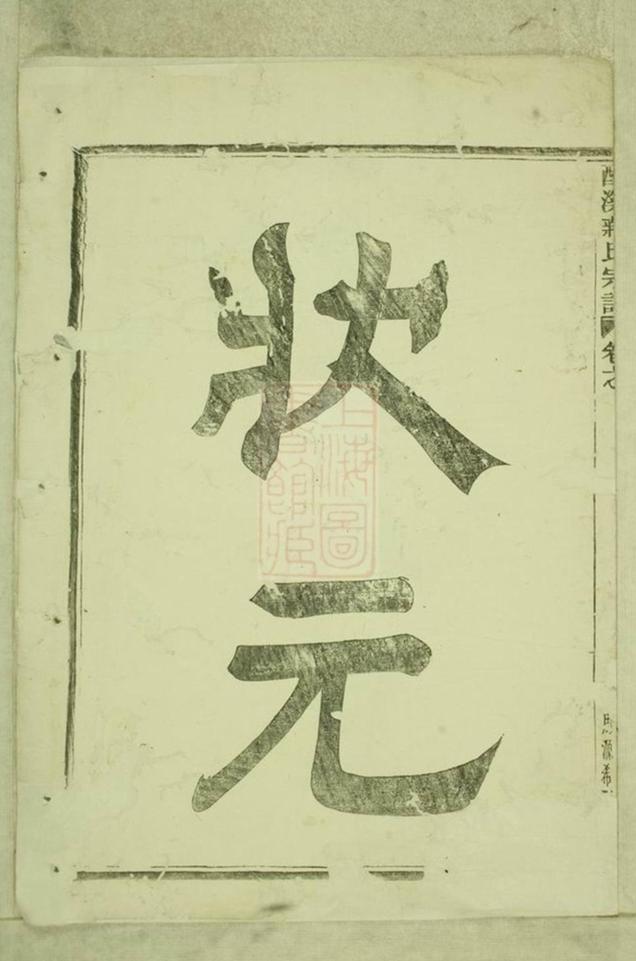 狀元
氏宗譜 卷之
上海圖書館藏